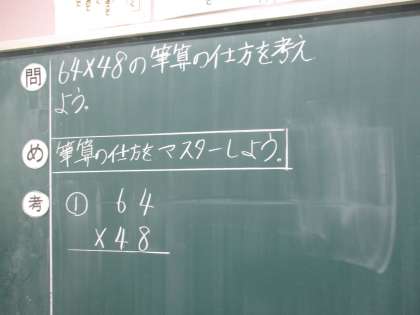 問 64×48の筆算の仕方を考え
よう。
め 筆算の仕方をマスターしよう。
考 ① 64
×48